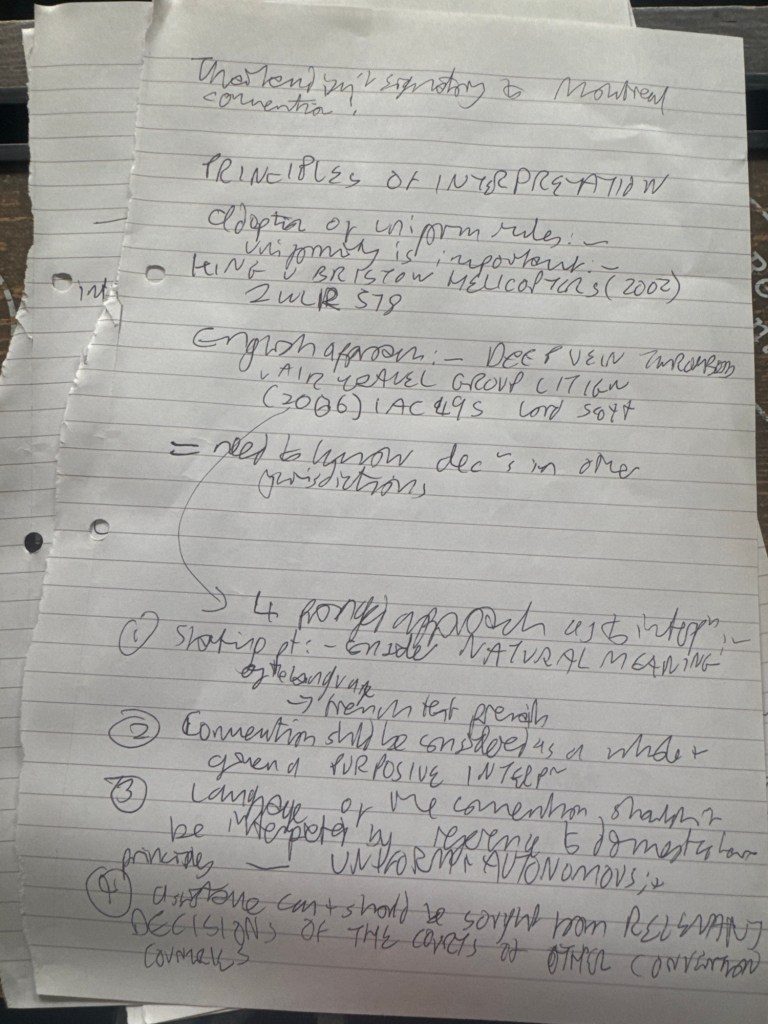 Thailand isn't signatory to Montreal
convention!
PRINCIPLES OF INTERPRETATION
adoption of uniform rules:-
uniformity is important:-
KING V BRISTOW HELICOPTERS (2002)
2 WLR 578
int
English approach:- DEEP VEIN THROMBOSIS
& AIR TRAVEL GROUP LITIGN
(2006) 1 AC 495 Lord Scott
= need to know decns in other
jurisdictions
4 pronged approach as to interpn:-
① Starting pt:- consider NATURAL MEANING
of the language
→ French text prevails
② Convention shld be considered as a whole +
given a PURPOSIVE INTERPN
③ Language of the convention shouldn't
be interpreted by reference to domestic law
principles — UNIFORM + AUTONOMOUS; +
④ assistance can + should be sought from RELEVANT
DECISIONS OF THE COURTS OF OTHER CONVENTION
COUNTRIES